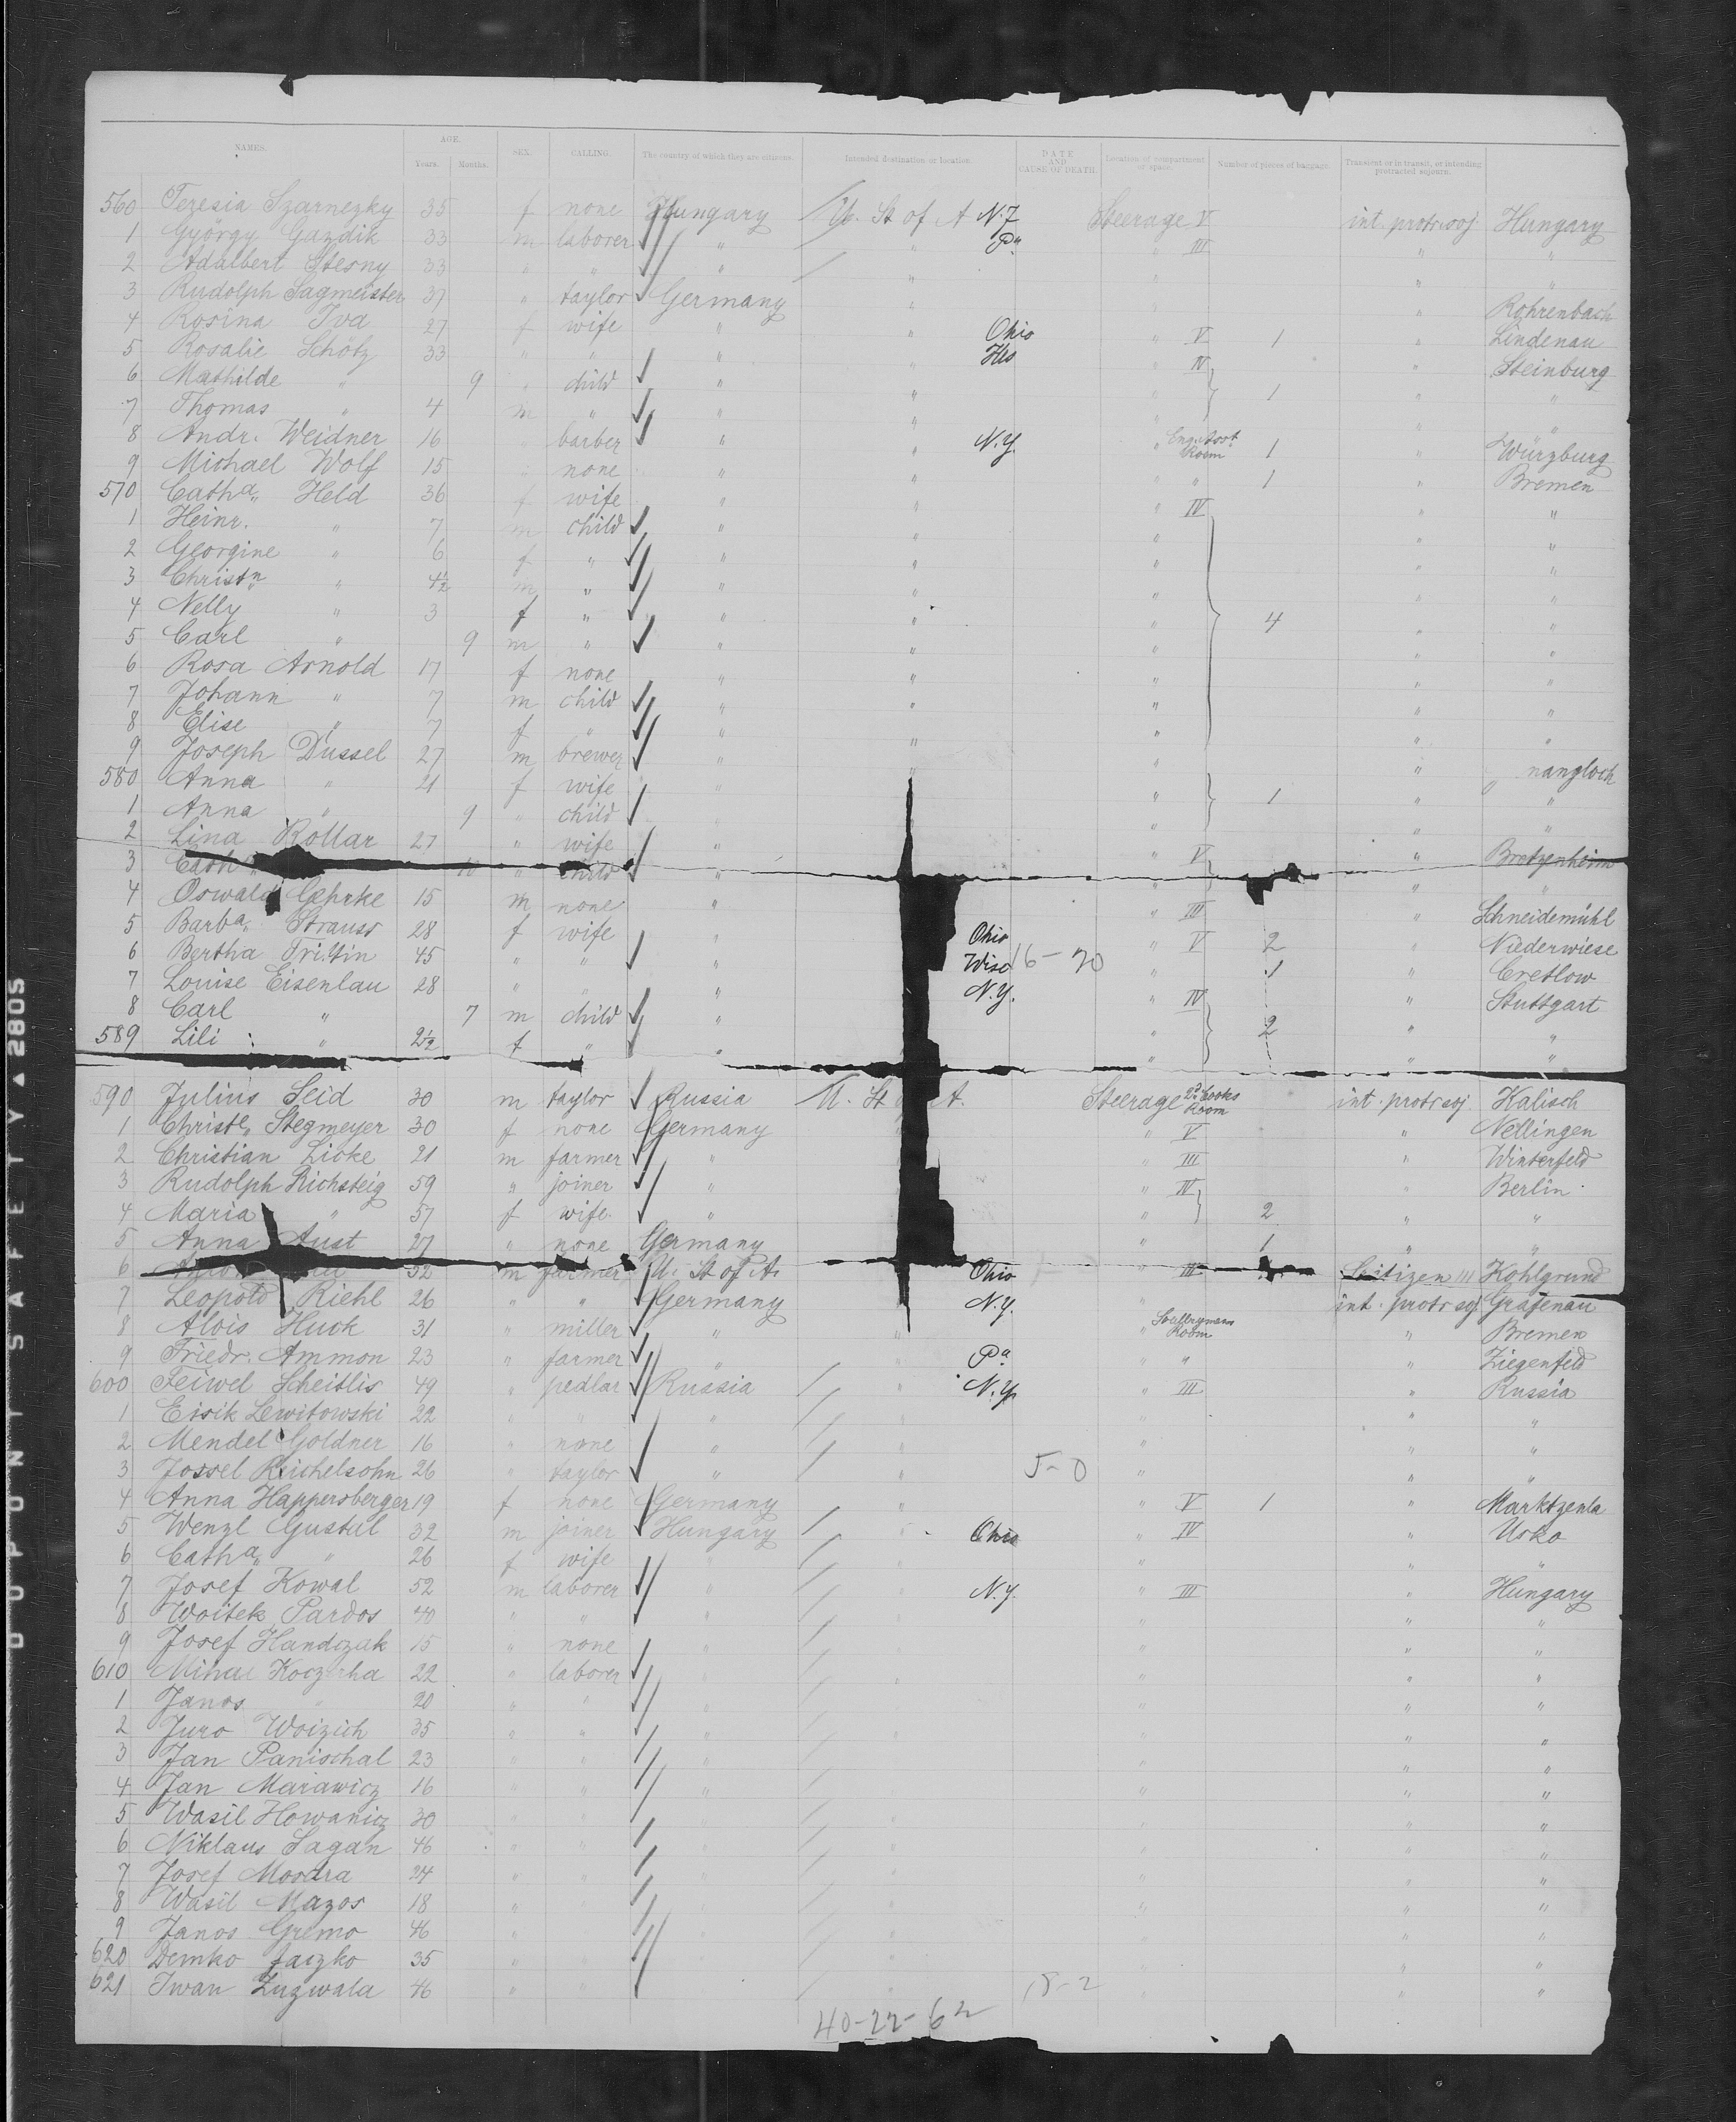 NAMES. AGE. Years. Months. SEX. CALLING. The country of which they are citizens. Intended destination or location. DATE AND CAUSE OF DEATH. Location of compartment or space. Number of pieces of baggage. Transient or in transit, or intending protracted sojourn.
560 Teresia Szarnezky 35 f none Hungary U. St of A N.J. Steerage V int. protr. soj. Hungary
1 György Gazdik 33 m laborer " " Pa. " III " "
2 Adalbert Stesny 33 " " " " " " "
3 Rudolph Sagmeister 37 " taylor Germany " " " Rohrenbach
4 Rosina Iva 27 f wife " " Ohio " V 1 " Lindenau
5 Rosalie Schötz 33 " " " " " IV " Steinburg
6 Mathilde " 9 " child " " " 1 " "
7 Thomas " 4 m " " " " " "
8 Andr. Weidner 16 " barber " " N.Y. " Room 1 " Würzburg
9 Michael Wolf 15 " none " " " " 1 " Bremen
570 Catha. Held 36 f wife " " " IV " "
1 Heinr. " 7 m child " " " " "
2 Georgine " 6 f " " " " " "
3 Christn " 4½ m " " " " " "
4 Nelly " 3 f " " " " 4 " "
5 Carl " 9 m " " " " " "
6 Rosa Arnold 17 f none " " " " "
7 Johann " 7 m child " " " " "
8 Elise " 7 f " " " " " "
9 Joseph Dussel 27 m brewer " " " " nangloch
580 Anna " 21 f wife " " 1 " "
1 Anna " 9 " child " " " "
2 Lina Kollar 27 " wife " " V " Bretzenheim
3 Cath 10 " child " " " "
4 Oswald Gehrke 15 m none " " III " Schneidemühl
5 Barba. Strauss 28 f wife " Ohio " V 2 " Niederwiese
6 Bertha 45 " " " Wisc 16-20 " 1 " Cretlow
7 Louise Eisenlau 28 " " " N.Y. " IV " Stuttgart
8 Carl " 7 m child " " 2 " "
589 Lili " 2½ f " " " " "
590 Julius Seid 30 m taylor Russia U. St A. Steerage 2d Cooks Room int. protr soj. Kalisch
1 Christe. Stegmeyer 30 f none Germany " V " Nellingen
2 Christian Licke 21 m farmer " " III " Winterfeld
3 Rudolph Richsteig 59 " joiner " " IV " Berlin
4 Maria " 57 f wife " " 2 " "
5 Anna Aust 27 " none Germany " 1 " "
6 52 m farmer U. St of A. Ohio " III Citizen Kohlgrund
7 Leopold Riehl 26 " " Germany N.Y. " int. protr soj. Grafenau
8 Alois Huck 31 " miller " " " Room " Bremen
9 Friedr. Ammon 23 " farmer " Pa " " " Ziegenfeld
600 Feiwel Scheitlis 49 " pedlar Russia " N.Y. " III " Russia
1 Eisik Lewitowski 22 " " " " " " "
2 Mendel Goldner 16 " none " " " " "
3 Jossel Reichelsohn 26 " taylor " " 5-0 " " "
4 Anna Happersberger 19 f none Germany " " V 1 "
5 Wenzl Gustal 32 m joiner Hungary " Ohio " IV " Usko
6 Catha. " 26 f wife " " " " "
7 Josef Kowal 52 m laborer " " N.Y. " III " Hungary
8 Woitek Pardos 40 " " " " " " "
9 Josef Handczak 15 " none " " " " "
610 22 " laborer " " " " "
1 Janos " 20 " " " " " "
2 Juro Woizich 35 " " " " " " "
3 Jan Panischal 23 " " " " " "
4 Jan Marawicz 16 " " " " " "
5 Wasil Howanicz 30 " " " " " "
6 Niklaus Sagan 46 " " " " " "
7 Josef Mosdra 24 " " " " " "
8 Wasil Mazos 18 " " " " " "
9 Janos Gremo 46 " " " " " "
620 Demko Jaczko 35 " " " " " "
621 Iwan Zuzwala 46 " " " " " "
18-2
40-22-62
DUPONT SAFETY ▲ 2805